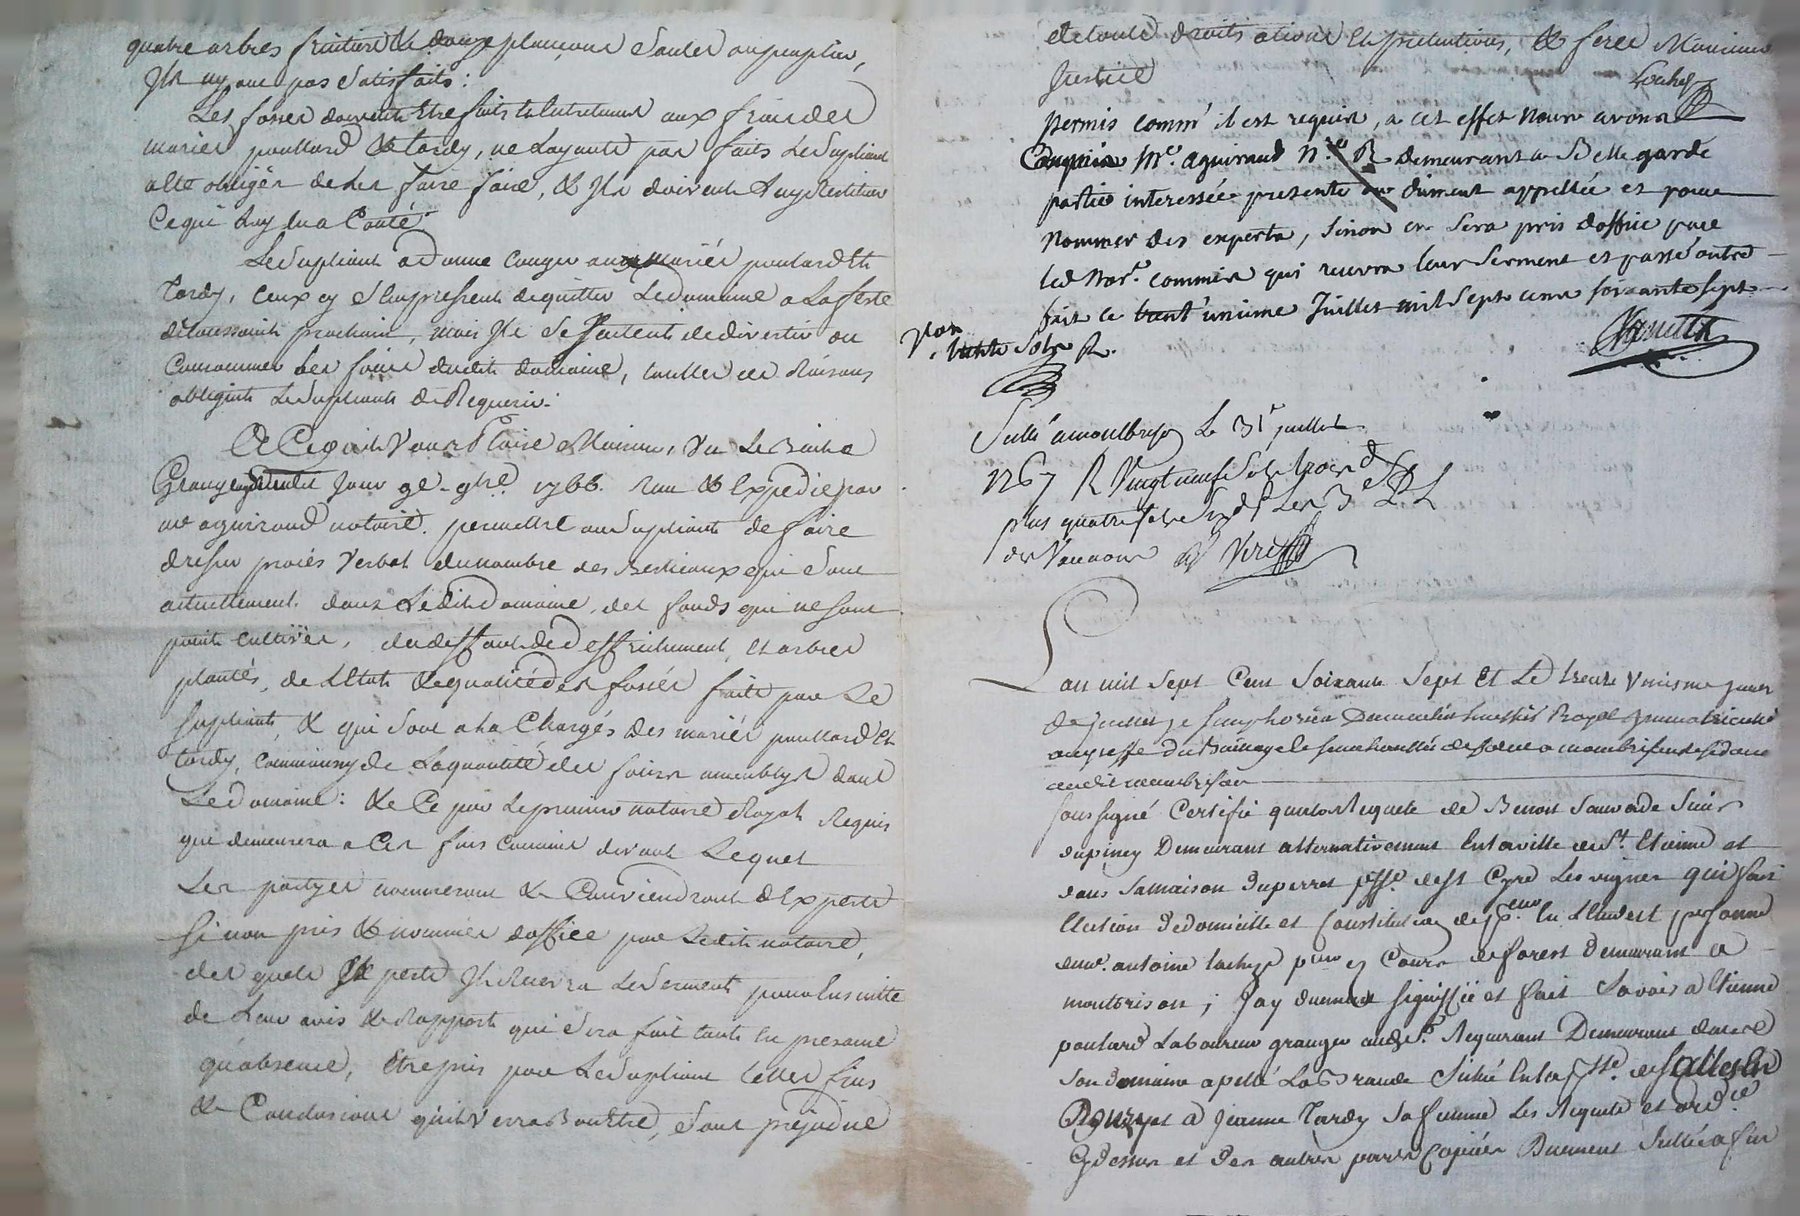 quatre arbres fruitiers & douze plançons saules ou peuplier,
Ils ny ont pas satisfaits:
Les fossés doivents Etre faits & Entretenus aux frais des
mariés poullard & tardy, ne Layants pas faits Le supliant
a eté obligér de les faire faire, & Ils doivents Luy Restituer
Ce qui Luy en a Couté.
Le supliant a donne Conger aux mariés poulard Et
Tardy, Ceux cy s'Empressent de quitter Le domaine a La feste
de toussaints prochaine, mais Ils se de divertir ou
Consommer les foins dudit domaine, touttes ces Raisons
obligents Le supliants de Requerir.
A Ce qu'il Vous Plaise Monsieur, Vu Le Bail a
Grangeage dudit Jour 9e. 9bre. 1766. Reçu & Expedié par
me aguiraud notaire. permettre au supliants de faire
dresser procés Verbal du nombre des Bestieaux qui sont
actuellement dans Ledit Domaine, des fonds qui ne sont
points Cultivés, du deffaut de deffrichement, Et arbres
plantés, de L'Etat & qualité des fossés faits par Le
supliants, & qui sont a la Charge des mariés poullard Et
tardy, Comme aussy de La quantité des foins dans
Le domaine: & Ce par Le premier notaire Royal Requis
qui demeurera a Ces fins Commis devant Lequel
Les partyes nommeront & Conviendront d'Experts
si non pris & nommés d'office par Ledit notaire,
des quels Experts Il Recevra Le serment pour Ensuitte
de Leur avis & Rapport qui sera fait tant En presence
qu'absence, Etre pris par Le supliant telles fins
& Conclusions qu'il Verra Bon Etre, sans prejudice
de touts droits actions Et pretentions, & ferez
Justice
permis comm' il est requis, a cet effet nous avons
Commis Me. aguiraud Nre. R. demeurant a Bellegarde
partie interessée presente ou düment appellée et pour
nommer des experts, sinon en sera pris d'office par
led. Nore. commis qui recevra leur serment et passé outre
fait ce trent'unieme Juillet mil sept cent soixante sept
trente sols R.
Scellé a montbrison Le 31e juillet
1767 R Vingt neuf sols trois d
plus quatre sols
L'an mil sept Cent soixante sept Et Le trente Unieme jour
de juillet je simphorien Dumoulin huissier Royal immatriculé
au greffe du Bailliage & senechaussée de forest a montbrison residant
audit montbrison
sous signé Certifié qu'a la Requete de Benoit sauvade sieur
dupiney Demeurant alternativement En la ville de St. Etienne et
dans sa maison duperret psse. de st Cyre Les vignes qui fait
Election de domicille et Constitution de pcur En L'Etude et personne
de me. antoine pcur Es Cours de forest Demeurant a
montbrison; J'ay duement signiffié et fait savoir a Etienne
poulard Laboureur granger aud. sr. Requerant Demeurant dans
son Domaine apellé La Grande situé En la psse. de salles En
Donzy et a Jeanne Tardy sa femme Les Requete et ordce
Cy dessus et des autres parts Copiées Duement scellée a fin